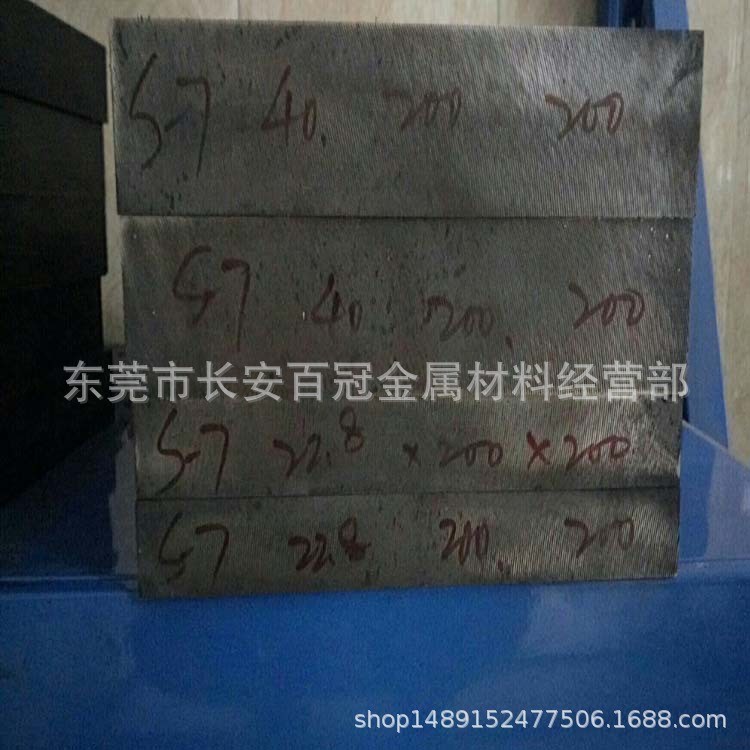 S-7 40. 200 200
S-7 40 200. 200
东莞市长安百冠金属材料经营部
S-7 22.8 × 200 × 200
S-7 22.8 200. 200
shop1489152477506.1688.com